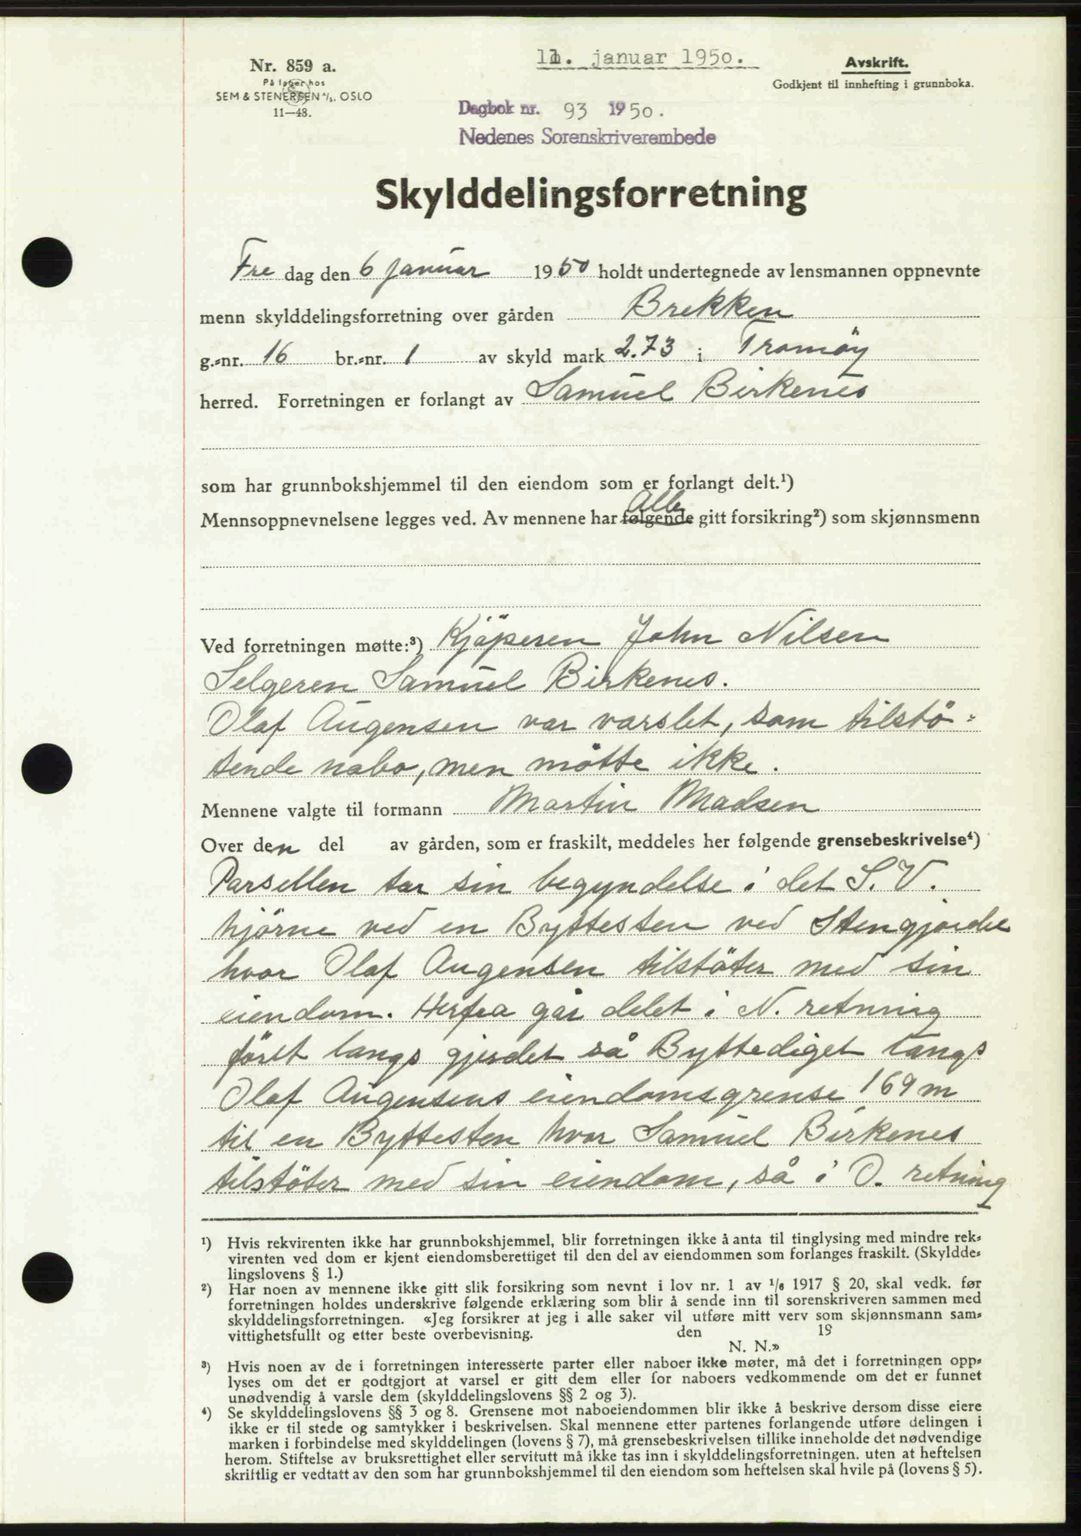 Nr. 859 a.
På lager hos
SEM & STENERSEN A/S. OSLO
11—48.
11. januar 1950.
Dagbok nr. 93 1950.
Nedenes Sorenskriverembede
Avskrift.
Godkjent til innhefting i grunnboka.
Skylddelingsforretning
Fre dag den 6 januar 1950 holdt undertegnede av lensmannen oppnevnte
menn skylddelingsforretning over gården Brekken
g.-nr. 16 br.-nr. 1 av skyld mark 2.73 i Tromøy
herred. Forretningen er forlangt av Samuel Birkenes
som har grunnbokshjemmel til den eiendom som er forlangt delt.¹)
Alle
Mennsoppnevnelsene legges ved. Av mennene har følgende gitt forsikring²) som skjønnsmenn
Ved forretningen møtte:³) Kjöperen John Nilsen
Selgeren Samuel Birkenes.
Olaf Augensen var varslet, som tilstö-
tende nabo, men mötte ikke.
Mennene valgte til formann Martin Madsen
Over den del av gården, som er fraskilt, meddeles her følgende grensebeskrivelse⁴)
Parsellen tar sin begyndelse i det S.V.
hjörne ved en Byttesten ved Stengjerdet
hvor Olaf Augensen tilstöter med sin
eiendom. Herfra går delet i N. retning
först langs gjerdet så Byttediget langs
Olaf Augensens eiendomsgrense 169 m
til en Byttesten hvor Samuel Birkenes
tilstöter med sin eiendom, så i O. retning
¹) Hvis rekvirenten ikke har grunnbokshjemmel, blir forretningen ikke å anta til tinglysing med mindre rek-
virenten ved dom er kjent eiendomsberettiget til den del av eiendommen som forlanges fraskilt. (Skyldde-
lingslovens § 1.)
²) Har noen av mennene ikke gitt slik forsikring som nevnt i lov nr. 1 av 1/6 1917 § 20, skal vedk. før
forretningen holdes underskrive følgende erklæring som blir å sende inn til sorenskriveren sammen med
skylddelingsforretningen. «Jeg forsikrer at jeg i alle saker vil utføre mitt verv som skjønnsmann sam-
vittighetsfullt og etter beste overbevisning. den 19
N. N.»
³) Hvis noen av de i forretningen interesserte parter eller naboer ikke møter, må det i forretningen opp-
lyses om det er godtgjort at varsel er gitt dem eller for naboers vedkommende om det er funnet
unødvendig å varsle dem (skylddelingslovens §§ 2 og 3).
⁴) Se skylddelingslovens §§ 3 og 8. Grensene mot naboeiendommen blir ikke å beskrive dersom disse eiere
ikke er til stede og samtykker i beskrivelsen. Skal mennene etter partenes forlangende utføre delingen i
marken i forbindelse med skylddelingen (lovens § 7), må grensebeskrivelsen tillike inneholde det nødvendige
herom. Stiftelse av bruksrettighet eller servitutt må ikke tas inn i skylddelingsforretningen. uten at heftelsen
skriftlig er vedtatt av den som har grunnbokshjemmel til den eiendom som heftelsen skal hvile på (lovens § 5).